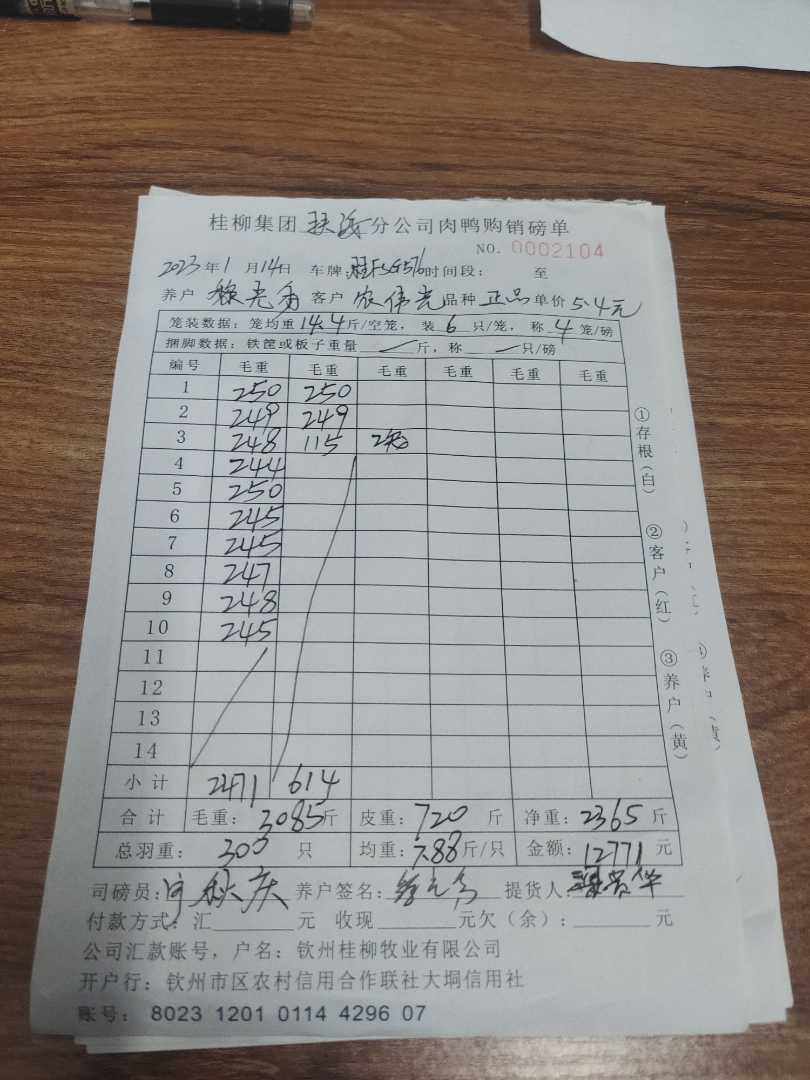 桂柳集团扶绥分公司肉鸭购销磅单
NO. 0002104
2023年1月14日 车牌: 时间段: 至
养户 客户 农伟光 品种 正品 单价 5.4元
笼装数据: 笼均重14.4斤/空笼, 装6只/笼, 称4笼/磅
捆脚数据: 铁筐或板子重量 斤, 称 只/磅
编号 毛重 毛重 毛重 毛重 毛重 毛重
1 250 250
2 249 249
3 248 115 2笼
4 244
5 250
6 245
7 245
8 247
9 248
10 245
11
12
13
14
小计 2471 614
合计 毛重: 3085斤 皮重: 720斤 净重: 2365斤
总羽重: 300只 均重: 7.88斤/只 金额: 12771元
司磅员: 养户签名: 提货人:
付款方式: 汇 元 收现 元欠(余): 元
公司汇款账号, 户名: 钦州桂柳牧业有限公司
开户行: 钦州市区农村信用合作联社大垌信用社
账号: 8023 1201 0114 4296 07
①存根(白) ②客户(红) ③养户(黄)